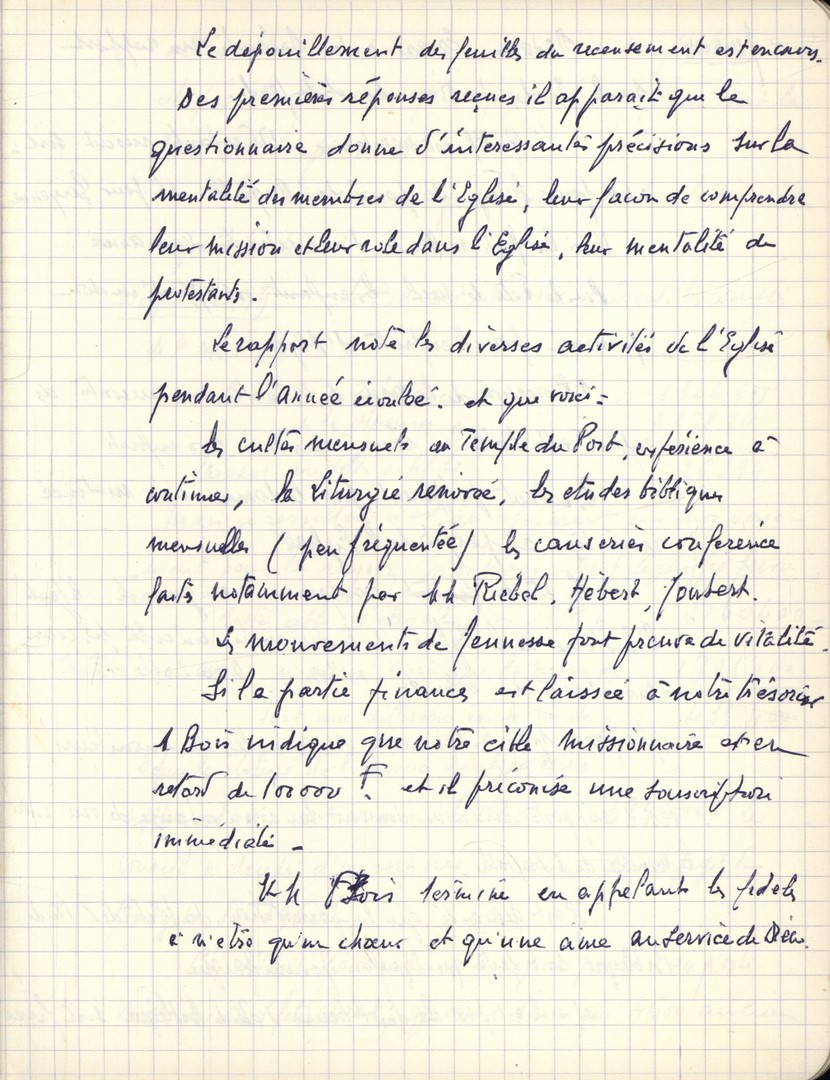 Le dépouillement des feuilles du recensement est en cours.
Des premières réponses reçues il apparait que le
questionnaire donne d'intéressantes précisions sur la
mentalité des membres de l'Eglise, leur façon de comprendre
leur mission et leur role dans l'Eglise, leur mentalité de
protestants.
Le rapport note les diverses activités de l'Eglise
pendant l'année écoulée. et que voici =
les cultes mensuels au Temple du Port, expérience à
continuer, la Liturgie renovée, les etudes bibliques
mensuelles (peu fréquentée) les causeries conference
faites notamment par Riebel, Hébert, Joubert.
Les mouvements de Jeunesse font preuve de vitalité.
Si la partie finances est laissée à notre trésorier
Bois indique que notre cible missionnaire est en
retard de 100000 F. et il préconise une souscription
immédiate -
Bois termine en appelant les fidèles
à n'etre qu'un choeur et qu'une ame au service de Dieu.